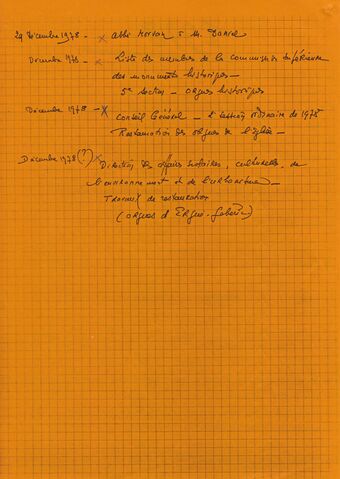 29 Décembre 1978 - x abbé Morvan à M. Daniel
Décembre 1978 - x Liste des membres de la commission supérieure
des monuments historiques -
5e section - orgues historiques
Décembre 1978 - x Conseil Général - 2e session ordinaire de 1978
Restauration des orgues de l'église -
Décembre 1978 (?) x Direction des affaires scolaires, culturelles, de
l'environnement et de l'urbanisme -
Travaux de restauration
(orgues d'Ergué-Gabéric)